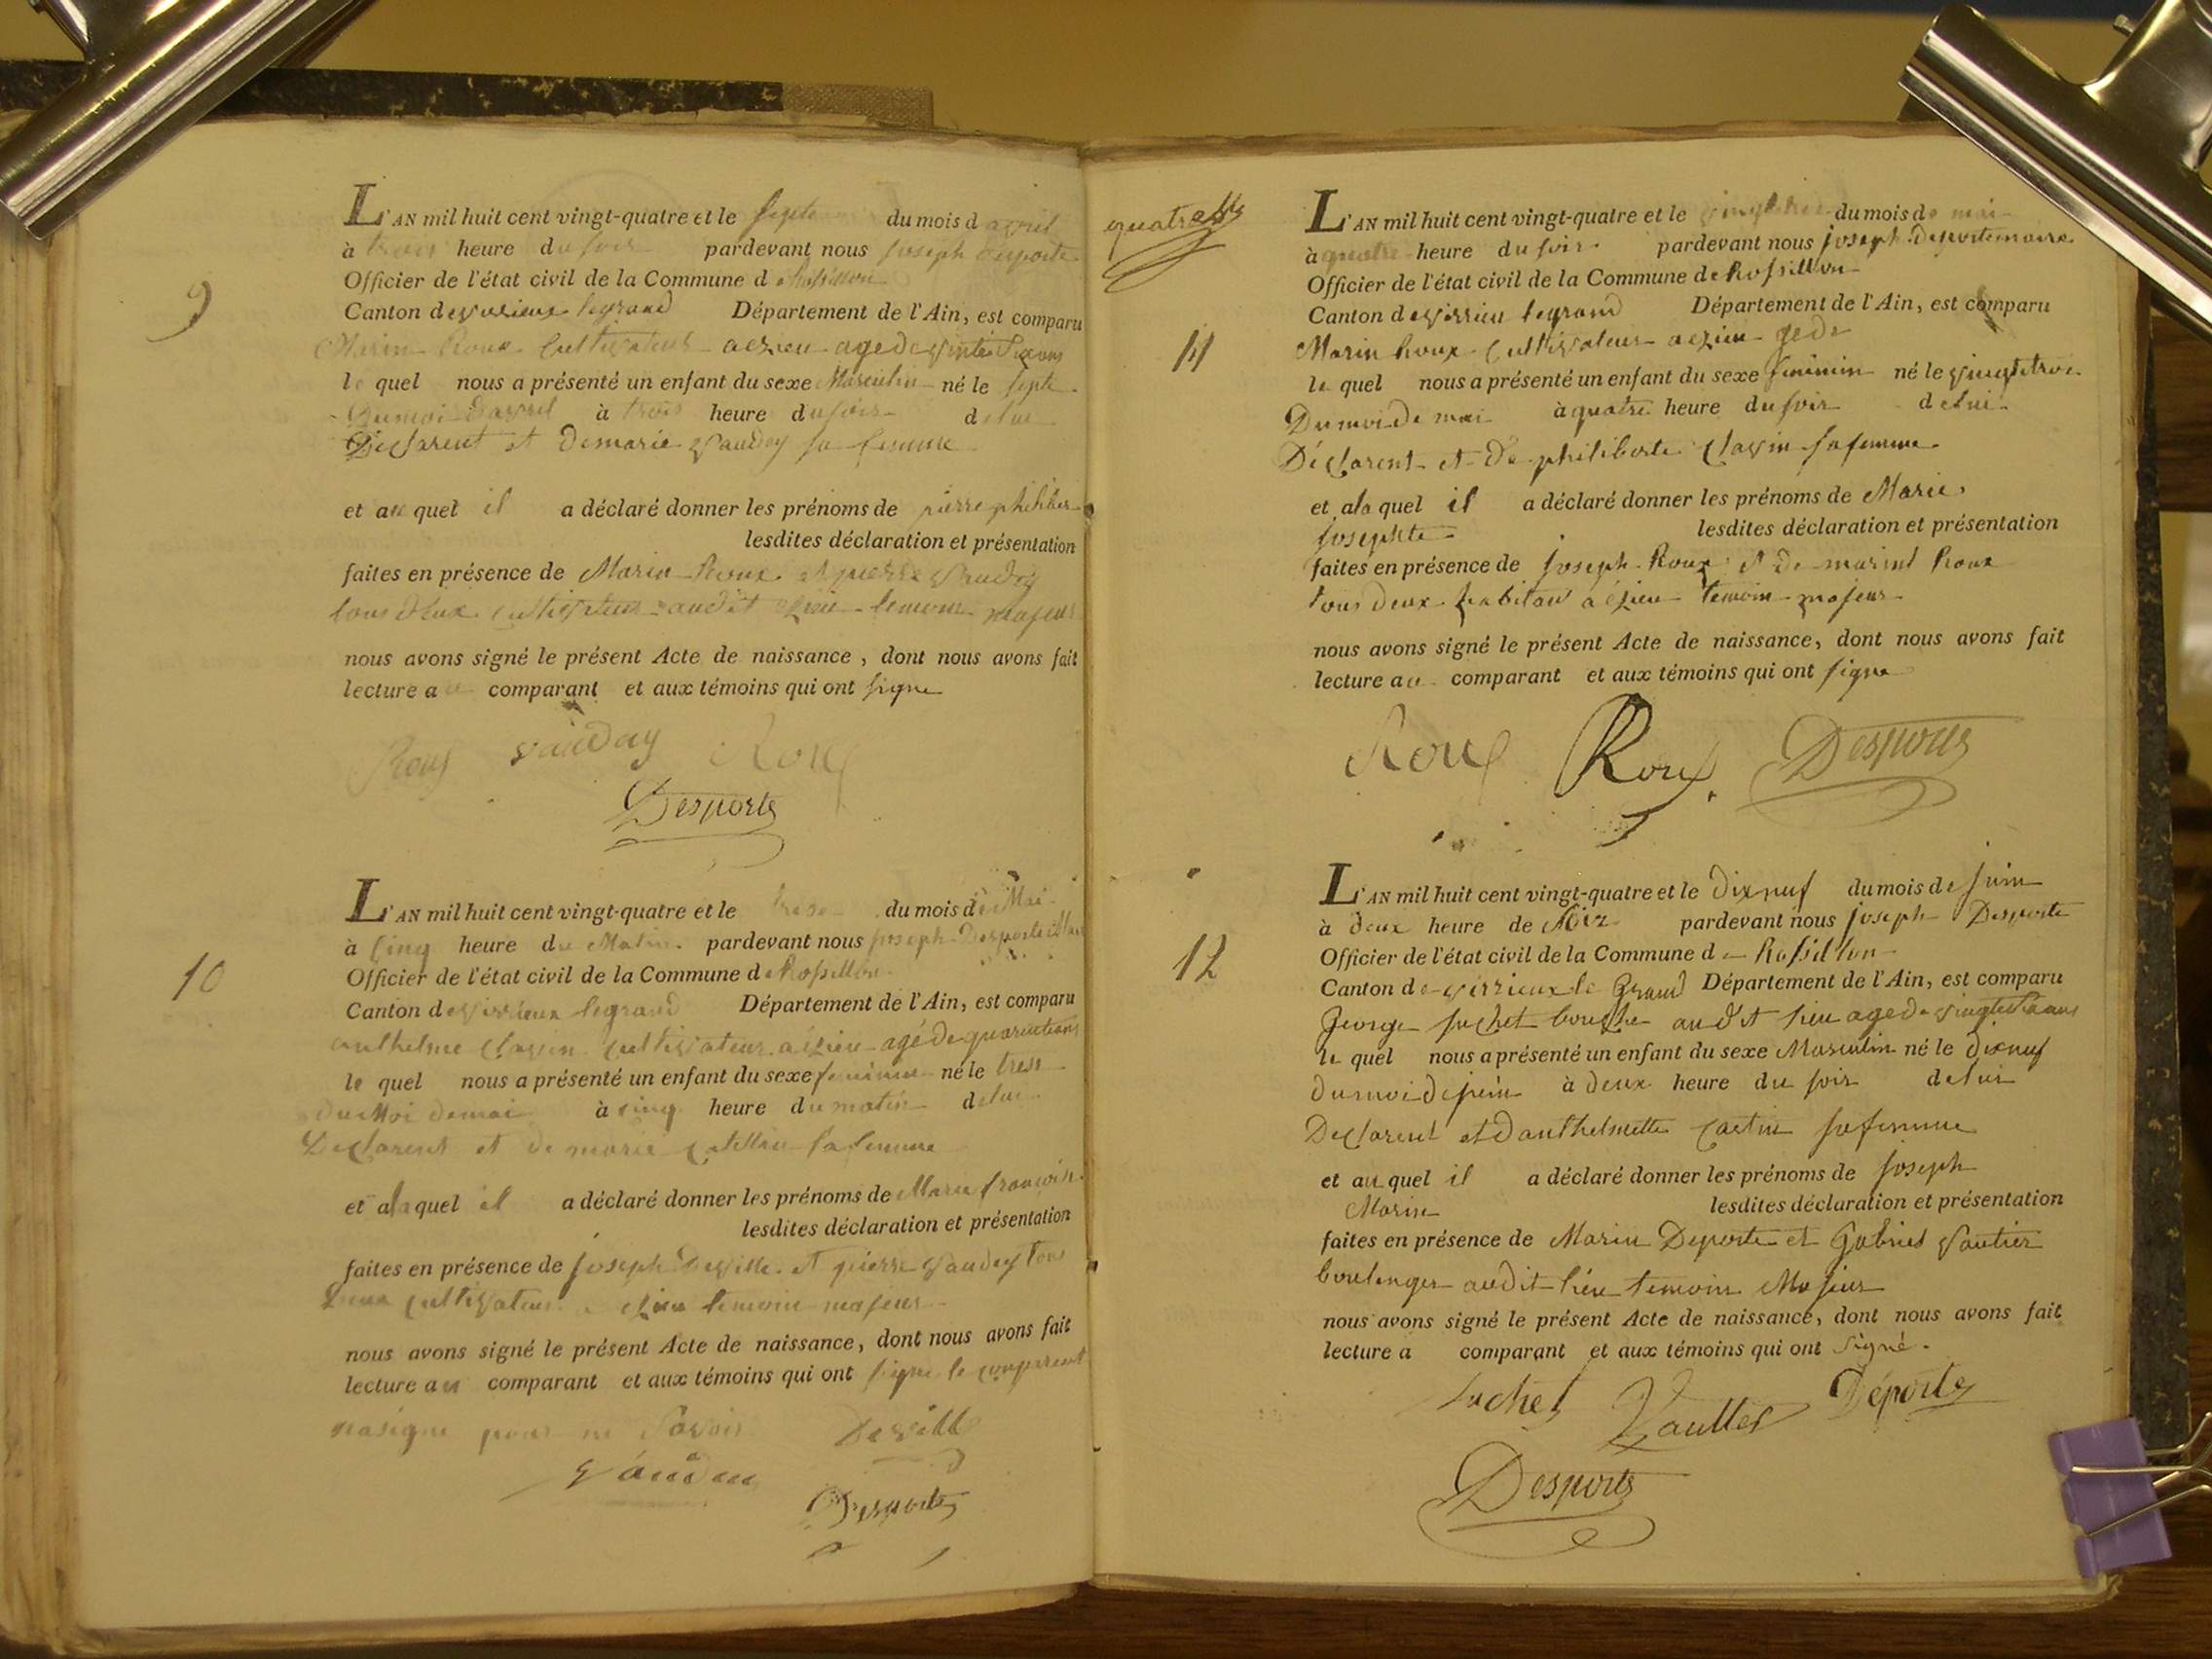 9
L'AN mil huit cent vingt-quatre et le septe du mois d avril
à trois heure du soir pardevant nous joseph deporte
Officier de l'état civil de la Commune d e Rossillon
Canton de virieux legrand Département de l'Ain, est comparu
Marin Roux Cultivateur a ezieu age de vinte Six ans
le quel nous a présenté un enfant du sexe Masculin né le septe
Du moi davril à trois heure du soir de lui
Declarent et de marie vauday sa femme
et au quel il a déclaré donner les prénoms de pierre philiber
lesdites déclaration et présentation
faites en présence de Marin Roux et pierre vauday
tous deux cultivateur audit ezieu temoin majeur
nous avons signé le présent Acte de naissance, dont nous avons fait
lecture au comparant et aux témoins qui ont signe
Roux vauday Roux
Desporte
10
L'AN mil huit cent vingt-quatre et le trese du mois de Mai
à Cinq heure du Matin pardevant nous joseph Desporte
Officier de l'état civil de la Commune d e Rossillon
Canton de virrieux legrand Département de l'Ain, est comparu
anthelme clavin cultivateur a ezieu agé de quarentians
le quel nous a présenté un enfant du sexe feminin né le tress
du Moi de mai à cinq heure du matin de lui
Declarent et de marie sa femme
et a la quel il a déclaré donner les prénoms de Marie francois
lesdites déclaration et présentation
faites en présence de joseph Deville et pierre vauday tous
Deux cultivateur a ezieu temoin majeur
nous avons signé le présent Acte de naissance, dont nous avons fait
lecture au comparant et aux témoins qui ont signe le comparent
nasigne pour ne Savoir Deville
vauday
Desporte
quatre
11
L'AN mil huit cent vingt-quatre et le vingt trois du mois de mai
à quatre heure du soir pardevant nous joseph Deporte maire
Officier de l'état civil de la Commune de Rossillon
Canton de virrieu legrand Département de l'Ain, est comparu
Marin Roux Cultivateur a ezieu
le quel nous a présenté un enfant du sexe feminin né le vingt trois
Du moi de mai à quatre heure du soir de lui
Déclarent et de philiberte Clavin sa femme
et a la quel il a déclaré donner les prénoms de Marie
josephte lesdites déclaration et présentation
faites en présence de joseph Roux et de marint Roux
tous deux habitan a ezieu temoin majeur
nous avons signé le présent Acte de naissance, dont nous avons fait
lecture au comparant et aux témoins qui ont signe
Roux Roux Desporte
12
L'AN mil huit cent vingt-quatre et le dixneuf du mois de juin
à deux heure de pardevant nous joseph Desporte
Officier de l'état civil de la Commune d e Rossillon
Canton de virrieux le Grand Département de l'Ain, est comparu
George juchet audit lieu age de
le quel nous a présenté un enfant du sexe Masculin né le dixneuf
du moi de juin à deux heure du soir de lui
Declarent et danthelmette sa femme
et au quel il a déclaré donner les prénoms de joseph
Marin lesdites déclaration et présentation
faites en présence de Marin Deporte et Gabriel vautier
boulenger audit lieu temoin Majeur
nous avons signé le présent Acte de naissance, dont nous avons fait
lecture a comparant et aux témoins qui ont Signé.
juchet Vauttier Déporte
Desporte